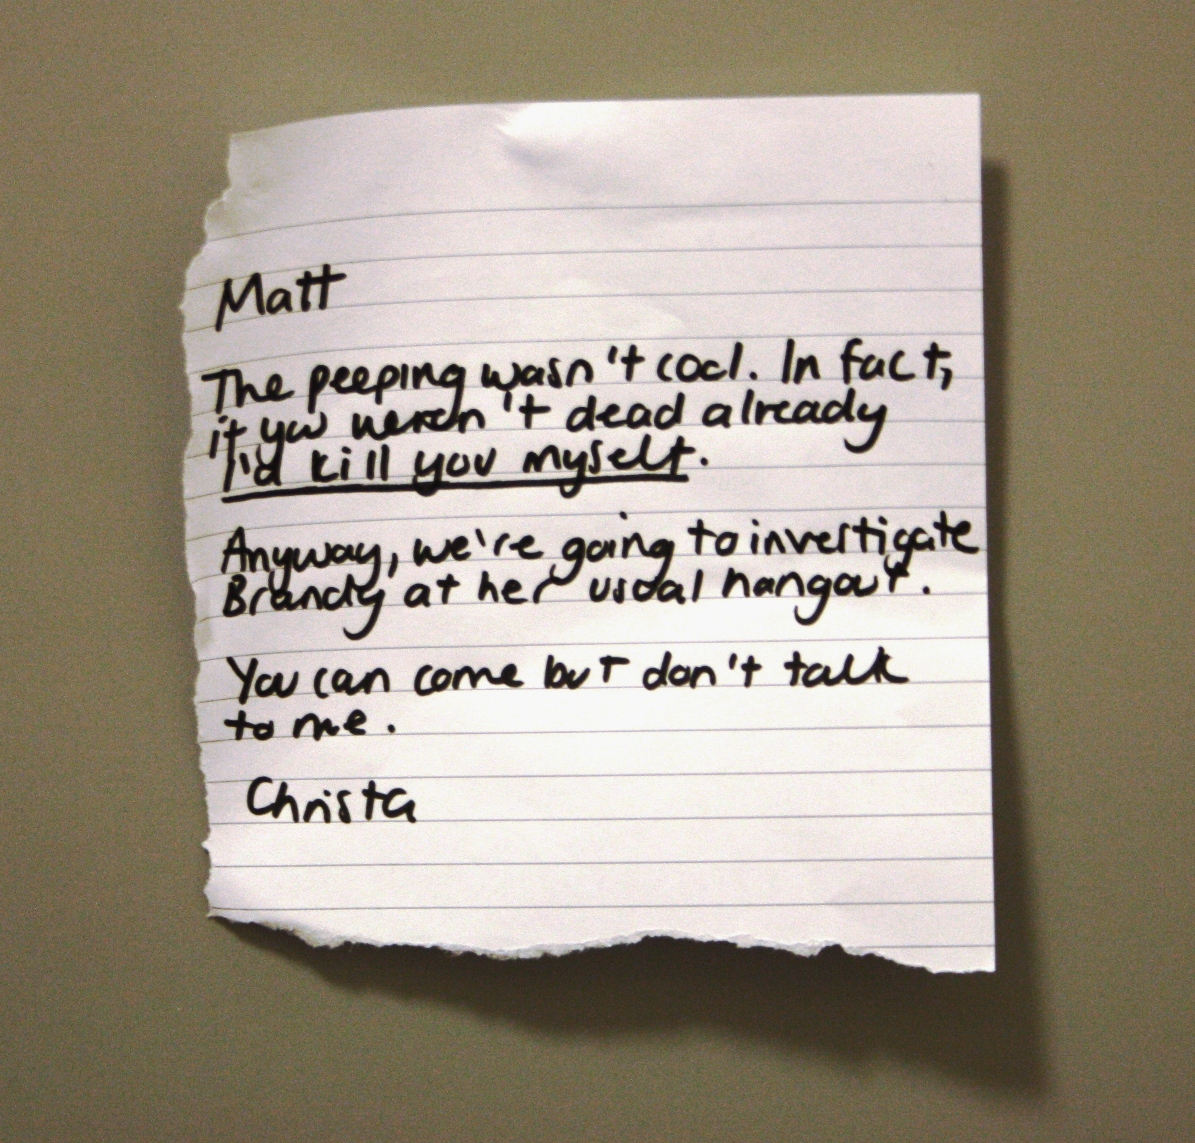 Matt
The peeping wasn't cool. In fact,
if you weren't dead already
I'd kill you myself.
Anyway, we're going to investigate
Brandy at her usual hangout.
You can come but don't talk
to me.
Christa